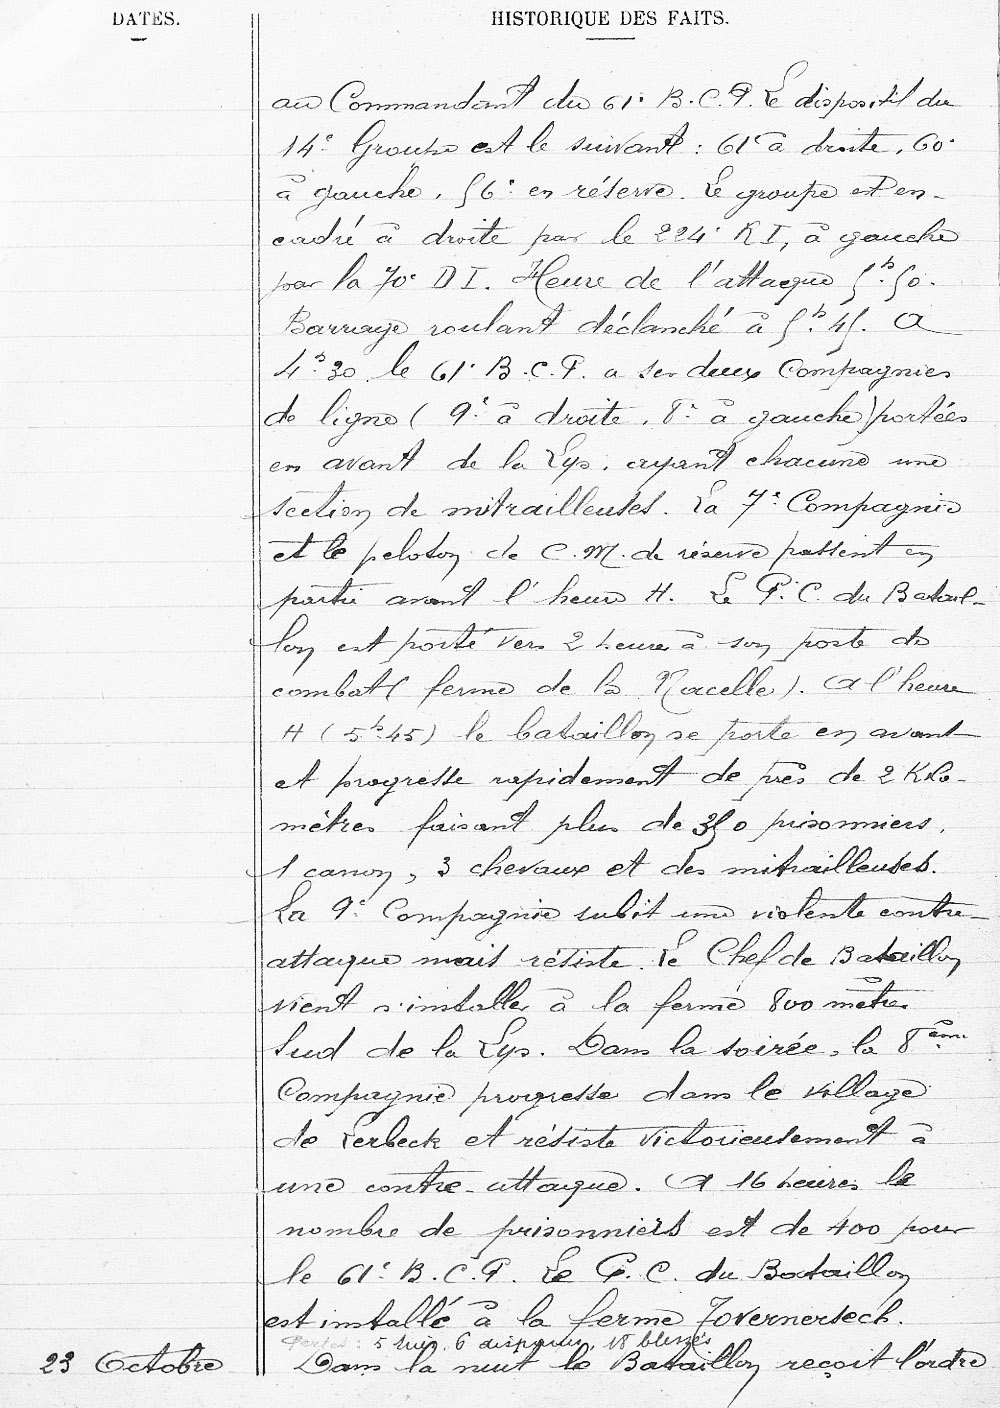 DATES.
HISTORIQUE DES FAITS.
au Commandant du 61e B.C.P. Le dispositif du
14e Groupe est le suivant : 61e à droite, 60e
à gauche, 56e en réserve. Le groupe est en-
cadré à droite par le 224e R I, à gauche
par la 70e D I. Heure de l'attaque 5h.50.
Barrage roulant déclanché à 5h.45. A
4h.30 le 61e B.C.P. a ses deux Compagnies
de ligne ( 9e à droite, 8e à gauche) portées
en avant de la Lys, ayant chacune une
section de mitrailleuses. La 7e Compagnie
et le peloton de C.M. de réserve passent en
partie avant l'heure H. Le P.C. du Batail-
lon est porté vers 2 heures à son poste de
combat ( ferme de la Nacelle ). A l'heure
H ( 5h.45) le bataillon se porte en avant
et progresse rapidement de près de 2 Kilo-
mètres faisant plus de 350 prisonniers,
1 canon, 3 chevaux et des mitrailleuses.
La 9e Compagnie subit une violente contre-
attaque mais résiste. Le Chef de Bataillon
vient s'installer à la ferme 800 mètres
Sud de la Lys. Dans la soirée, la 8ème
Compagnie progresse dans le village
de Lerbeck et résiste victorieusement à
une contre-attaque. A 16 heures le
nombre de prisonniers est de 400 pour
le 61e B.C.P. Le P.C. du Bataillon
est installé à la ferme Tovernersech.
Pertes : 5 tués, 6 disparus, 18 blessés
23 Octobre Dans la nuit le Bataillon reçoit l'ordre